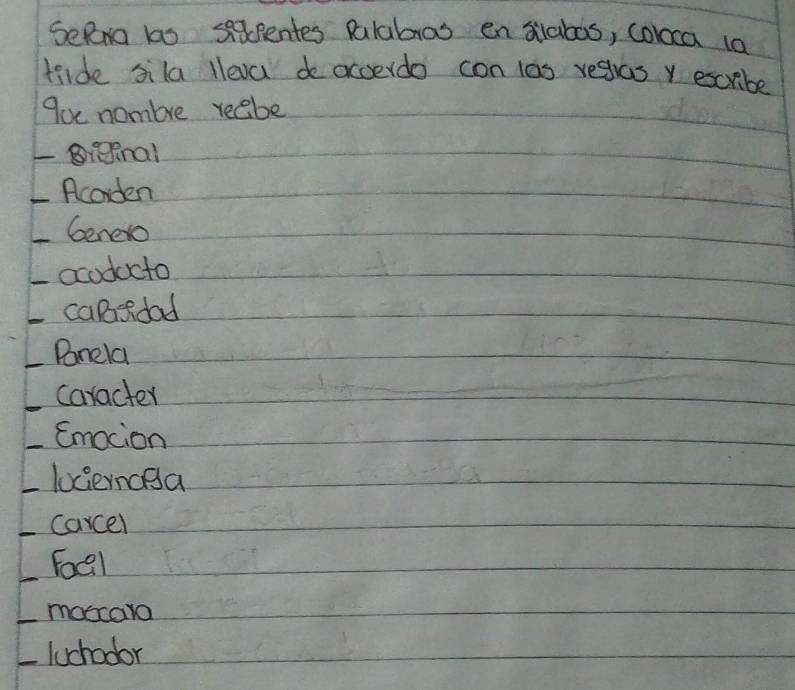 Separa las siguientes Palabras en silabas, coloca la
tilde si la lleva de acuerdo con las reglas y escribe
que nombre recibe
- Original
- Acorden
- Genero
- acuducto
- capasidad
- Panela
- Caracter
- Emocion
- luciernaga
- Carcel
- Facil
- mascara
- luchador